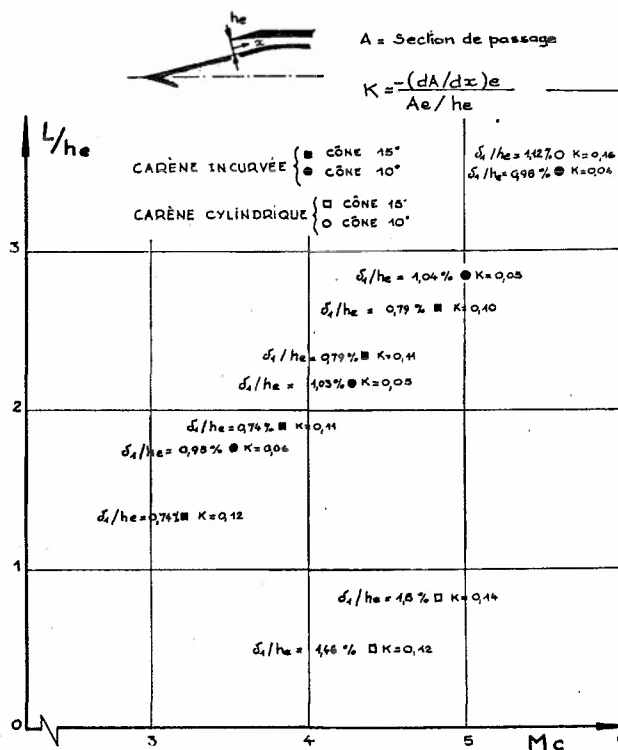 he
x
A = Section de passage
K = -(dA/dx)e
Ae / he
L/he
CARÈNE INCURVÉE { ■ CÔNE 15°
● CÔNE 10°
CARÈNE CYLINDRIQUE { □ CÔNE 15°
○ CÔNE 10°
δ₁/he = 1,12% ○ K = 0,16
δ₁/he = 0,98 % ● K = 0,04
3
δ₁/he = 1,04 % ● K = 0,05
δ₁/he = 0,79 % ■ K = 0,10
δ₁/he = 0,79% ■ K = 0,11
δ₁/he = 1,03 % ● K = 0,05
2
δ₁/he = 0,74% ■ K = 0,11
δ₁/he = 0,98 % ● K = 0,06
δ₁/he = 0,74% ■ K = 0,12
1
δ₁/he = 1,5 % □ K = 0,14
δ₁/he = 1,46 % □ K = 0,12
0
3 4 5 Mc